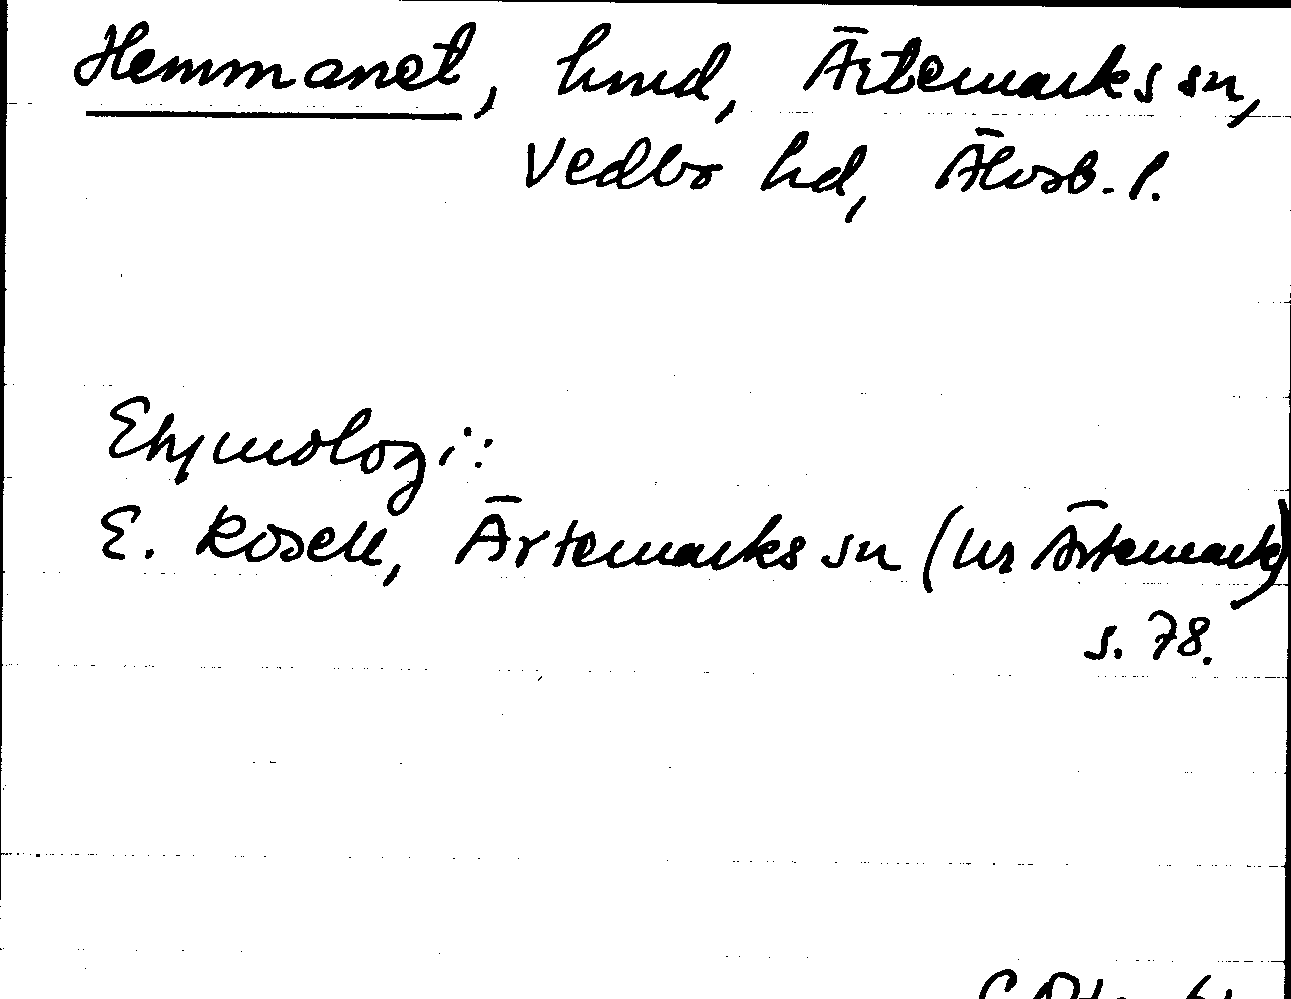 Hemmanet, hmd, Ärtemarks sn,
Vedbo hd, Älvsb. l.
Etymologi:
E. Rosell, Ärtemarks sn (ur Ärtemark)
s. 78.